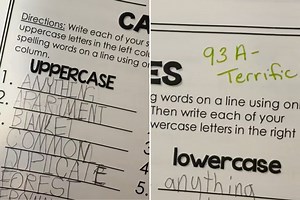 CA
Directions: Write each of your s
uppercase letters in the left col
spelling words on a line using or
column.
UPPERCASE
1. ANYTHING
2. APARTMENT
BLANKET
COMMON
DUPLICATE
FOREST
93 A-
Terrific
ES
g words on a line using on
Then write each of your
wercase letters in the right
lowercase
anything
4
5.